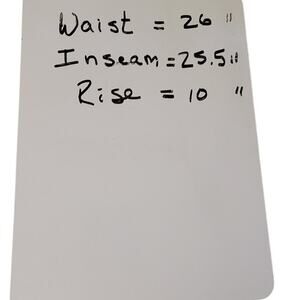 Waist = 26 "
Inseam = 25.5 "
Rise = 10 "